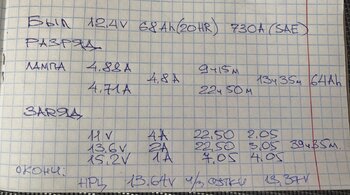 БЫЛ 12.4V 68Ah(20HR) 730A (SAE)
РАЗРЯД
ЛАМПА 4.88A 4.8A 9ч15м 13ч35м 64Ah
4.71A 22ч50м
ЗАРЯД
11V 4A 22.50 2.05
13.6V 2A 22.50 3.05 39ч35м.
15.2V 1A 7.05 4.05
ОКОНЧ:
НРЦ 13.64V ч/з сутки 13,37V